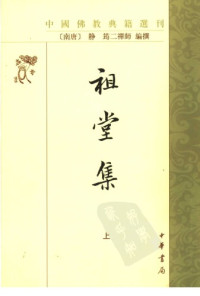 中國佛教典籍選刊
〔南唐〕靜 筠二禪師 編撰
祖堂集
上
中華書局